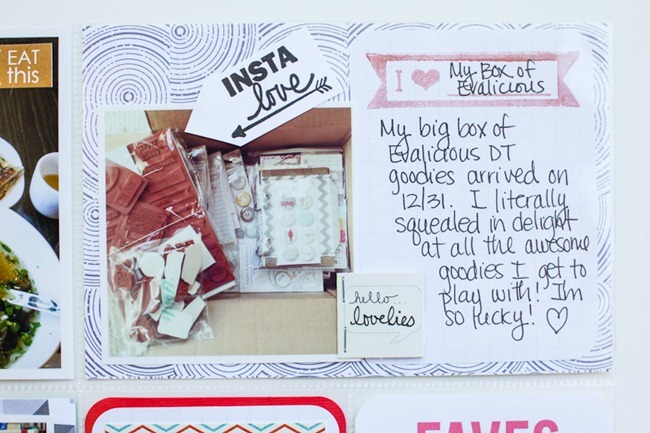 EAT
this
INSTA
love
I ♥ My Box of
Evalicious
My big box of
Evalicious DT
goodies arrived on
12/31. I literally
squealed in delight
at all the awesome
goodies I get to
play with! I'm
so lucky! ♡
hello
lovelies
FAVES